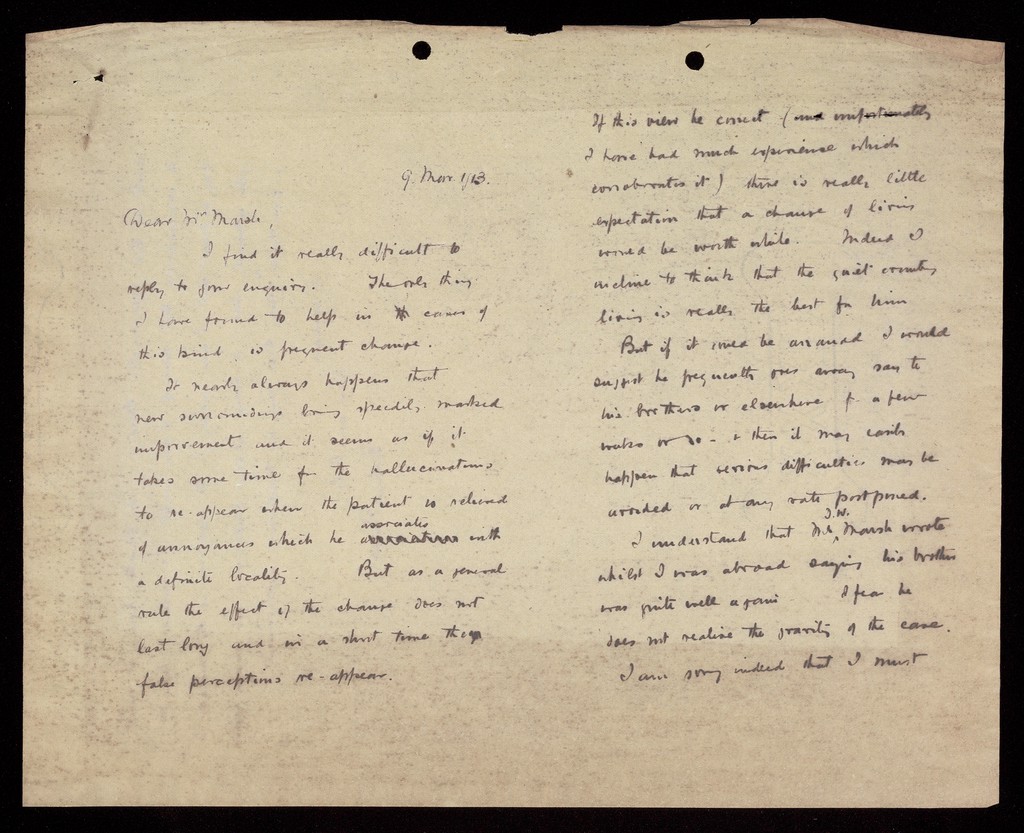 9. Mar 1913.
Dear Mr Marsh,
I find it really difficult to
reply to your enquiry. The only thing
I have found to help in cases of
this kind is frequent change.
It nearly always happens that
new surroundings bring speedily marked
improvement and it seems as if it
takes some time for the hallucinations
to re-appear when the patient is relieved
of annoyances which he associates with
a definite locality. But as a general
rule the effect of the change does not
last long and in a short time the
false perceptions re-appear.
If this view be correct (and unfortunately
I have had much experience which
corroborates it) there is really little
expectation that a change of living
would be worth while. Indeed I
incline to think that the quiet country
living is really the best for him
But if it could be arranged I would
suggest he frequently goes away say to
his brothers or elsewhere for a few
weeks or so - & then it may easily
happen that serious difficulties may be
avoided or at any rate postponed.
I understand that Mr J.W. Marsh wrote
whilst I was abroad saying his brother
was quite well again I fear he
does not realise the gravity of the case.
I am sorry indeed that I must